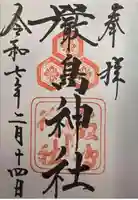 奉拝
厳島神社
令和七年二月十四日